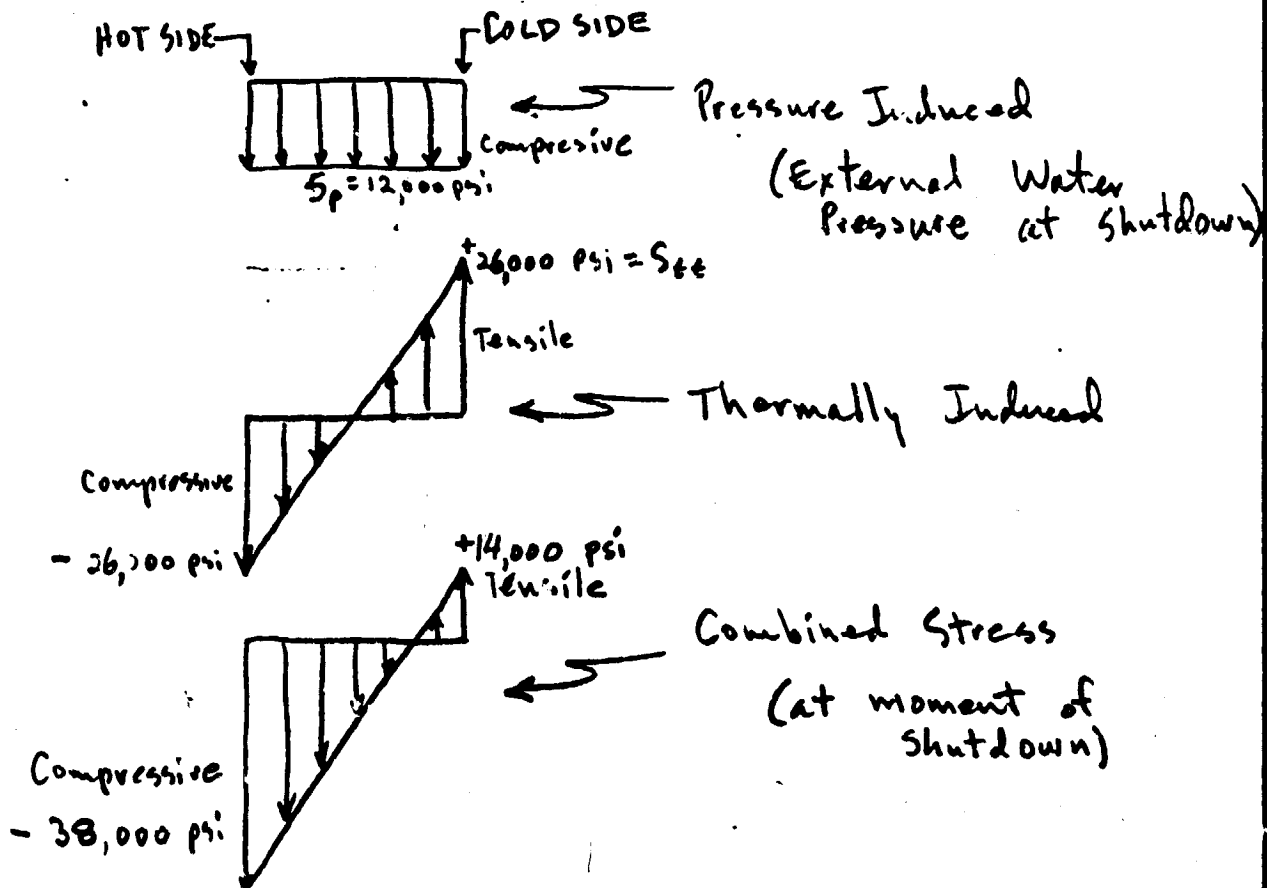 HOT SIDE
COLD SIDE
Pressure Induced
compresive
(External Water
Pressure at shutdown)
Sp = 12,000 psi
+26,000 psi = Stt
Tensile
Thermally Induced
Compressive
- 26,000 psi
+14,000 psi
Tensile
Combined Stress
(at moment of
shutdown)
Compressive
- 38,000 psi